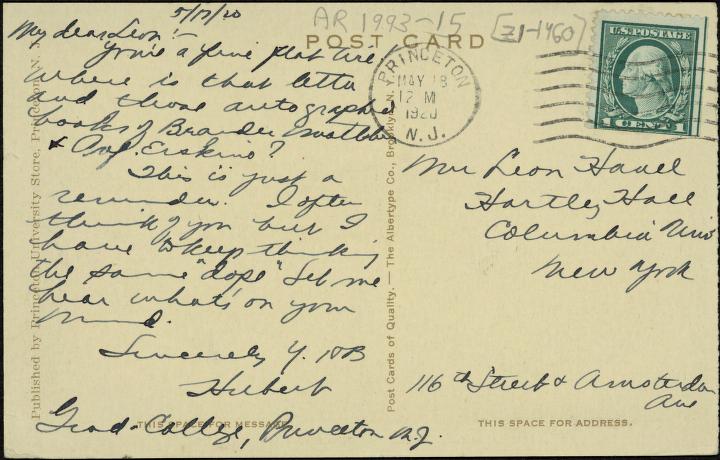 5/17/20
AR 1993-15 [Z1-1460]
POST CARD
My dear Leon:—
You're a fine flat tire
where is that letter
and those autographed
books of Brander Matthews
& Prof. Erskine?
This is just a
reminder. I often
think of you but I
have to keep thinking
the same "dope" Let me
hear what's on your
mind.
Sincerely Y.
Hubert
Grad-College, Princeton N.J.
THIS SPACE FOR MESSAGE
Published by Princeton University Store, Princeton, N. J.
Post Cards of Quality. — The Albertype Co., Brooklyn, N.
PRINCETON
MAY 18
12 M
1920
N.J.
U.S. POSTAGE
1 CENT 1
Mr Leon Havel
Hartley Hall
Columbia Univ
New York
116th Street & Amsterdam
Ave
THIS SPACE FOR ADDRESS.